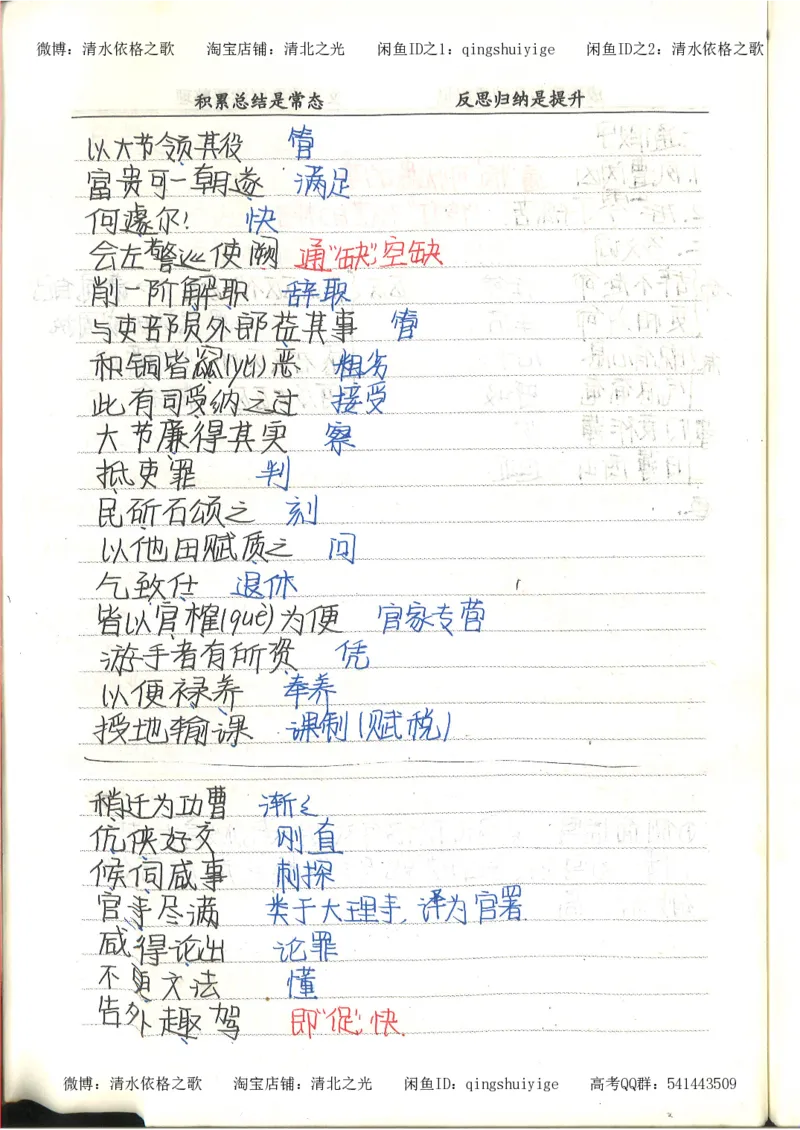 微博：清水依格之歌 淘宝店铺：清北之光 闲鱼ID之1：qingshuiyige 闲鱼ID之2：清水依格之歌
积累总结是常态 反思归纳是提升
以大节领其役 管
富贵可一朝遂 满足
何遽尔！ 快
会左警巡使阙 通“缺”空缺
削一阶解职 辞取
与吏部员外郎莅其事 管
和铜皆窳(yǔ)恶 粗劣
此有司受纳之过 接受
大节廉得其实 察
抵吏罪 判
民斫石颂之 刻
以他田赋质之 问
乞致仕 退休
皆以官榷(què)为便 官家专营
游手者有所资 凭
以便禄养 奉养
授地输课 课制(赋税)
稍迁为功曹 渐之
伉侠好交 刚直
候伺咸事 刺探
官寺尽满 类于大理寺，译为官署
咸得论出 论罪
不更文法 懂
告外趣驾 即“促”快
微博：清水依格之歌 淘宝店铺：清北之光 闲鱼ID：qingshuiyige 高考QQ群：541443509